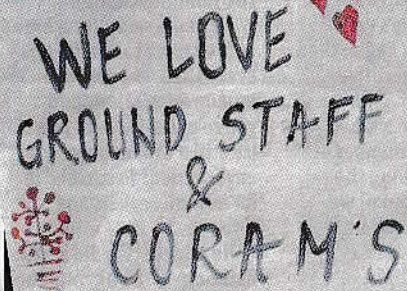 WE LOVE
GROUND STAFF
&
CORAM'S